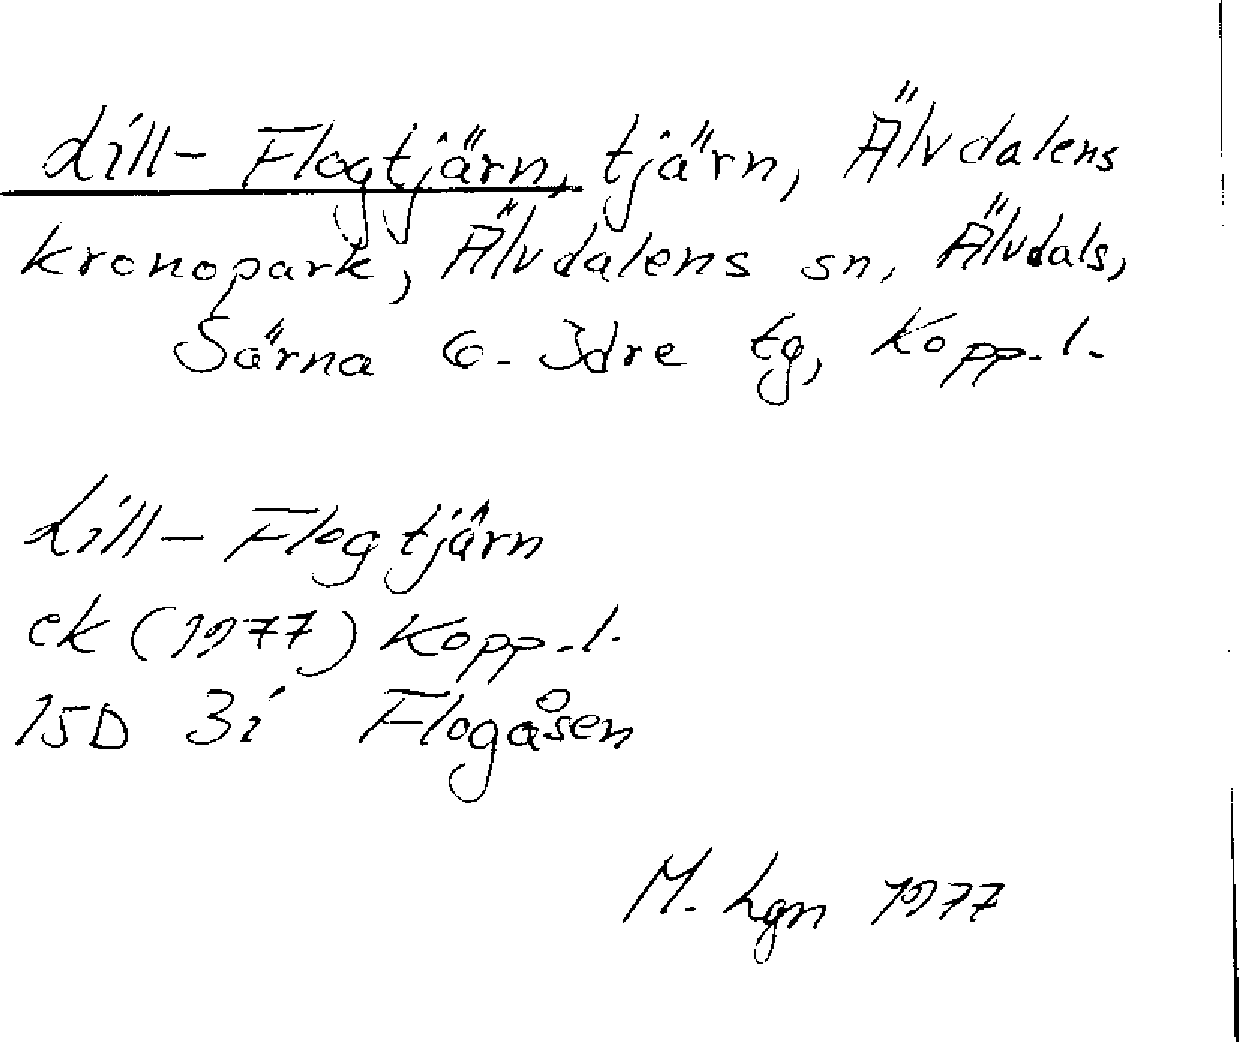 Lill-Flogtjärn, tjärn, Älvdalens
kronopark, Älvdalens sn, Älvdals,
Särna o. Idre tg, Kopp.l.
Lill-Flogtjärn
ek (1977) Kopp.l.
15D 3i Flogåsen
M. Lgn 1977